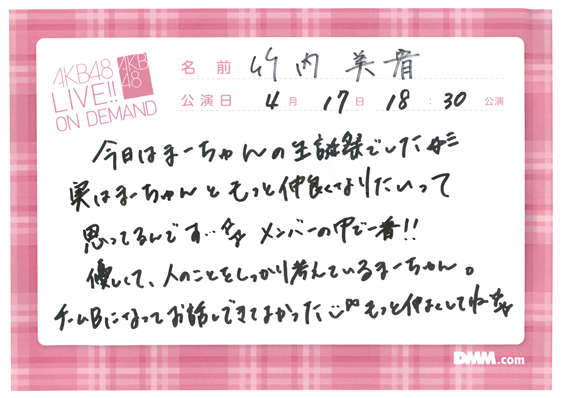 AKB48
LIVE!!
ON DEMAND
AKB
48
名前 竹内美宥
公演日 4月17日 18:30 公演
今日はまーちゃんの生誕祭でした
実はまーちゃんともっと仲良くなりたいって
思ってるんです… メンバーの中で一番!!
優しくて、人のことをしっかり考えているまーちゃん。
チームBになってお話しできてよかった もっと仲よくしてね
DMM.com